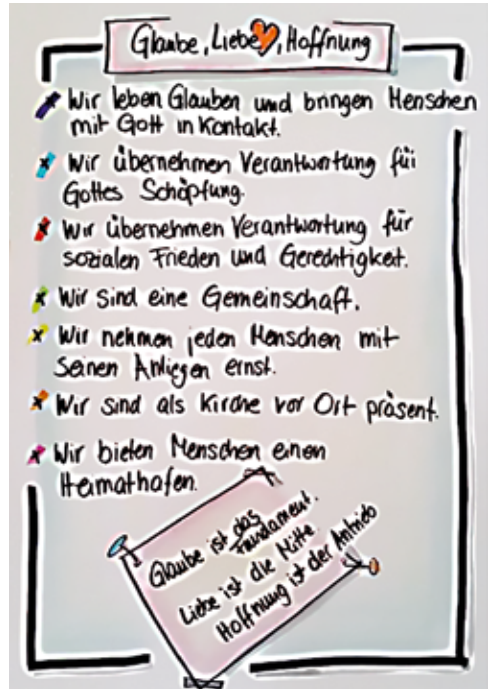 Glaube, Liebe, Hoffnung
Wir leben Glauben und bringen Menschen
mit Gott in Kontakt.
Wir übernehmen Verantwortung für
Gottes Schöpfung.
Wir übernehmen Verantwortung für
sozialen Frieden und Gerechtigkeit.
Wir sind eine Gemeinschaft.
Wir nehmen jeden Menschen mit
Seinen Anliegen ernst.
Wir sind als Kirche vor Ort präsent.
Wir bieten Menschen einen
Heimathafen.
Glaube ist das
Fundament.
Liebe ist die Mitte
Hoffnung ist der Antrieb